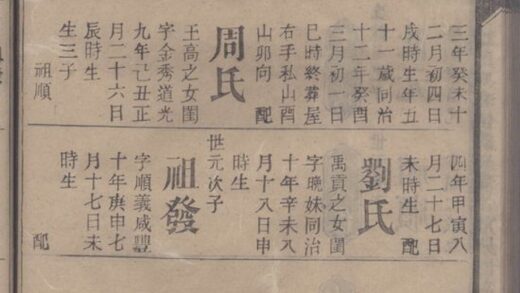 三年癸未十
二月初四日
戌時生年五
十一歲同治
十二年癸酉
三月初一日
巳時終葬屋
右手私山酉
山卯向 配
周氏
王高之女閨
字金秀道光
九年己丑正
月二十六日
辰時生
生三子
祖順
四年甲寅八
月二十七日
未時生 配
劉氏
禹貢之女閨
字晚妹同治
十年辛未八
月十八日申
時生
世元次子
祖發
字順義咸豐
十年庚申七
月十七日未
時生
配